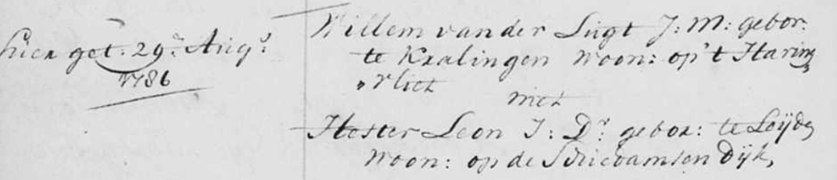 hier get. 29.n Augs.
1786
Willem van der Lugt J: M: gebor.
te Kralingen woon: op't Haring
vliet
met
Hester Leon J: Dr. gebor: te Leijde,
woon: op de Schiedamsen Dijk,